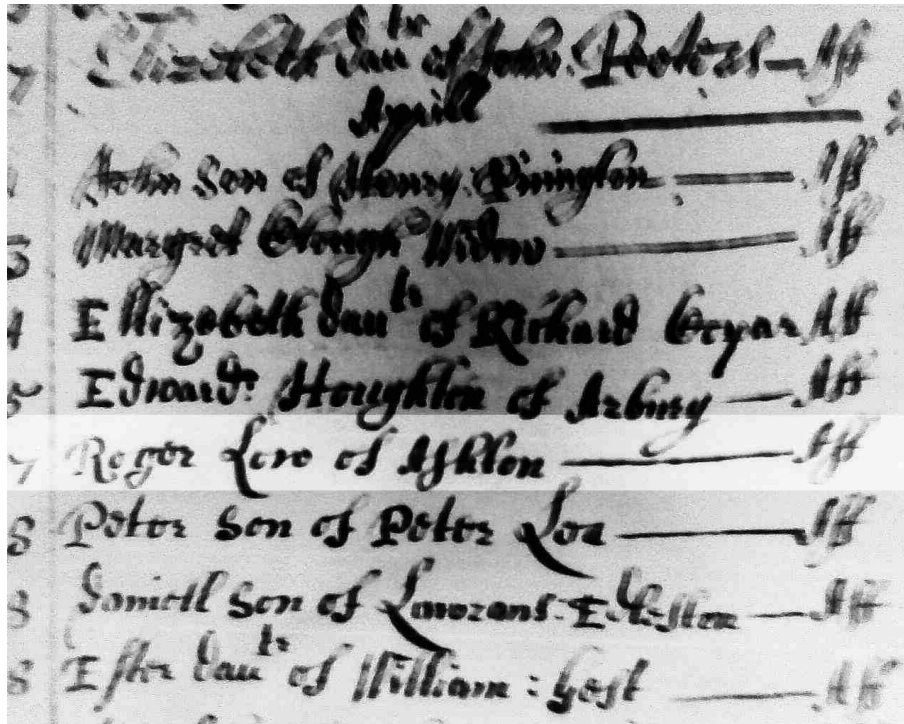 7 Elizebeth dautr of John Peeters — Aff
Aprill
John Son of Henry Pinington — Aff
5 Margret Clough Widow — Aff
4 Ellizebeth dautr of Richard Aff
5 Edward: Houghton of Arbury — Aff
7 Roger Low of Ashton — Aff
8 Peter Son of Peter Lea — Aff
8 Daniell Son of Lawrans: Aff
8 Ester dautr of William: Gest — Aff